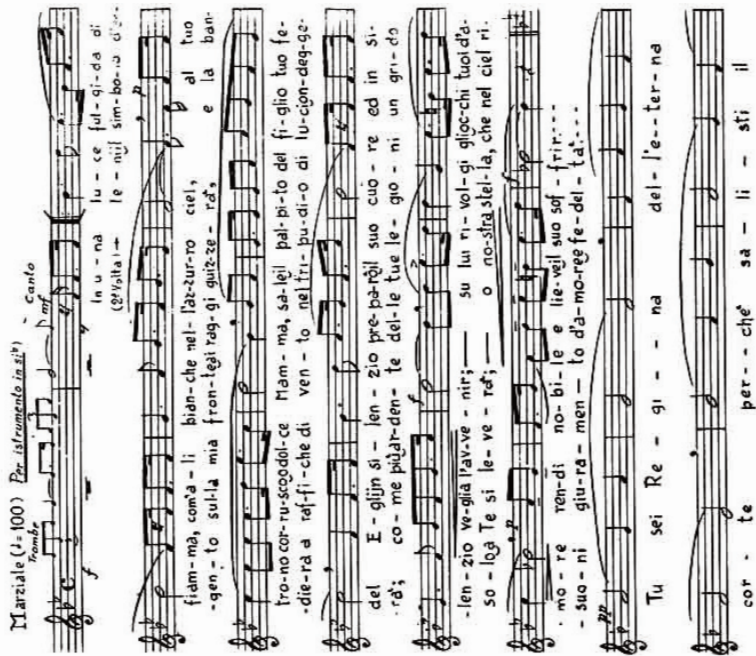 Marziale (♩=100) Per istrumento in si♭
Trombe
Canto
f
mf
In u-na lu-ce ful-gi-da di
(2ª Volta)- le-nijl sim-bo-lo d'ar-
p
fiam-ma, com'a-li bian-che nel-l'az-zur-ro ciel, al tuo
-gen-to sul-la mia fron-teai rag-gi guiz-ze-rà, e la ban-
tro-no cor-ru-scoodol-ce Mam-ma, sa-leil pal-pi-to del fi-glio tuo fe-
-die-ra a raf-fi-che di ven-to nel tri-pu-di-o di lu-cion-deg-ge-
del E-glijn si-len-zio pre-pa-ròil suo cuo-re ed in si-
-rà; co-me piùar-den-te del-le tue le-gio-ni un gri-do
f
-len-zio ve-glia l'av-ve-nir; su lui ri-vol-gi glioc-chi tuoi d'a-
so-loa Te si le-ve-rà; o no-stra stel-la, che nel ciel ri-
p
f
-mo-re ren-di no-bi-le e lie-veil suo sof-frir.---
-suo-ni giu-ra-men-to d'a-mo-ree fe-del-tà.---
pp
Tu sei Re-gi--na del-l'e--ter-na
cor-te per-chè sa-li-sti il